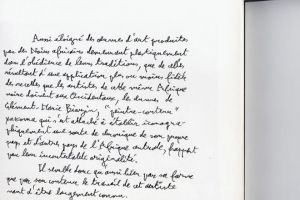 Aussi éloigné des œuvres d'art produites
par des Noirs africains demeurant plastiquement
dans l'obédience de leurs traditions, que de celles
résultant d'une application plus ou moins fidèle
des recettes que les artistes de cette même Afrique
noire doivent aux Occidentaux, les œuvres de
Clément-Marie Biazin, "peintre-conteur"
qui s'est attaché à établir iconogra-
phiquement une sorte de chronique de son propre
pays et d'autres pays de l'Afrique centrale, frappent
par leur incontestable originalité.
Il semble donc que aussi bien par sa forme
que par son contenu le travail de cet artiste
d'être largement connu.